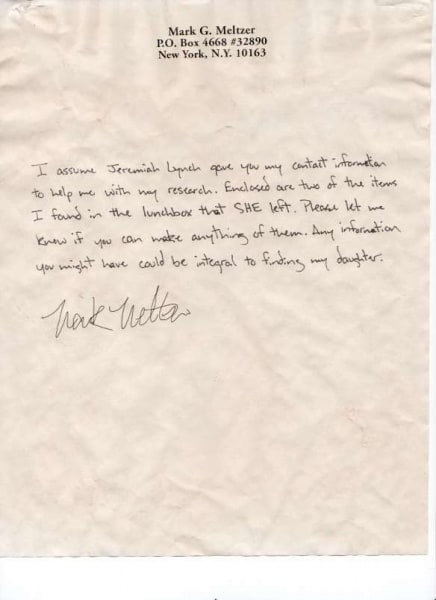 Mark G. Meltzer
P.O. Box 4668 #32890
New York, N.Y. 10163
I assume Jeremiah Lynch gave you my contact information
to help me with my research. Enclosed are two of the items
I found in the lunchbox that SHE left. Please let me
know if you can make anything of them. Any information
you might have could be integral to finding my daughter.
Mark Meltzer